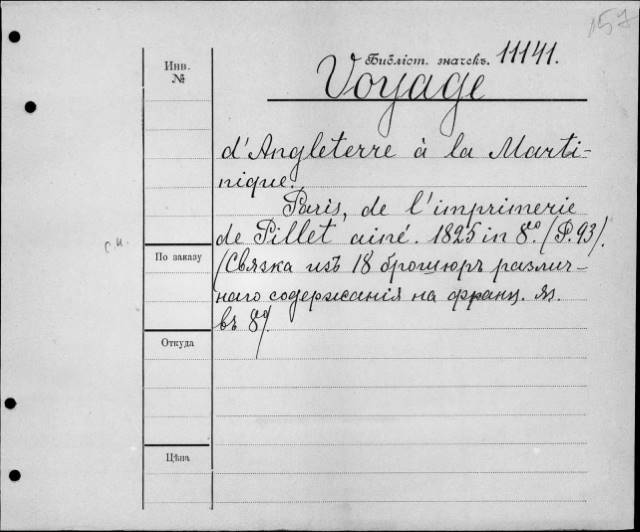 157
Инв.
№
Библіот. значекъ. 11141.
Voyage
d'Angleterre à la Marti-
nique.
Paris, de l'imprimerie
de Pillet ainé. 1825 in 8º. (P. 93).
(Связка изъ 18 брошюръ различ-
наго содержанія на франц. яз.
въ 8º).
По заказу
Откуда
Цѣна